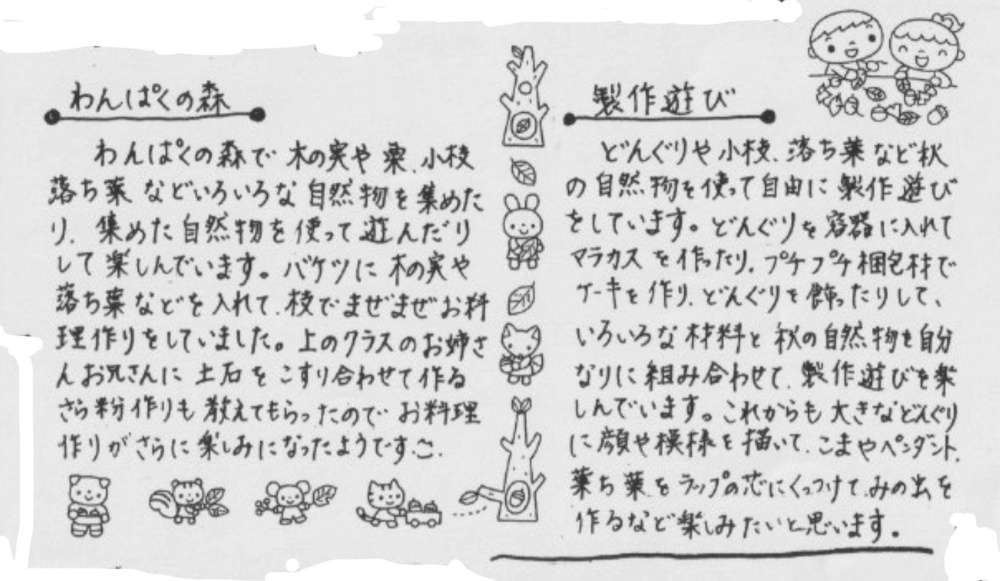 わんぱくの森
わんぱくの森で木の実や栗、小枝
落ち葉などいろいろな自然物を集めた
り、集めた自然物を使って遊んだり
して楽しんでいます。バケツに木の実や
落ち葉などを入れて、枝でまぜまぜお料
理作りをしていました。上のクラスのお姉さ
んお兄さんに土石をこすり合わせて作る
さら粉作りも教えてもらったのでお料理
作りがさらに楽しみになったようです。
製作遊び
どんぐりや小枝、落ち葉など秋
の自然物を使って自由に製作遊び
をしています。どんぐりを容器に入れて
マラカスを作ったり、プチプチ梱包材で
ケーキを作り、どんぐりを飾ったりして、
いろいろな材料と秋の自然物を自分
なりに組み合わせて、製作遊びを楽
しんでいます。これからも大きなどんぐり
に顔や模様を描いて、こまやペンダント、
葉ち葉をラップの芯にくっつけてみの虫を
作るなど楽しみたいと思います。